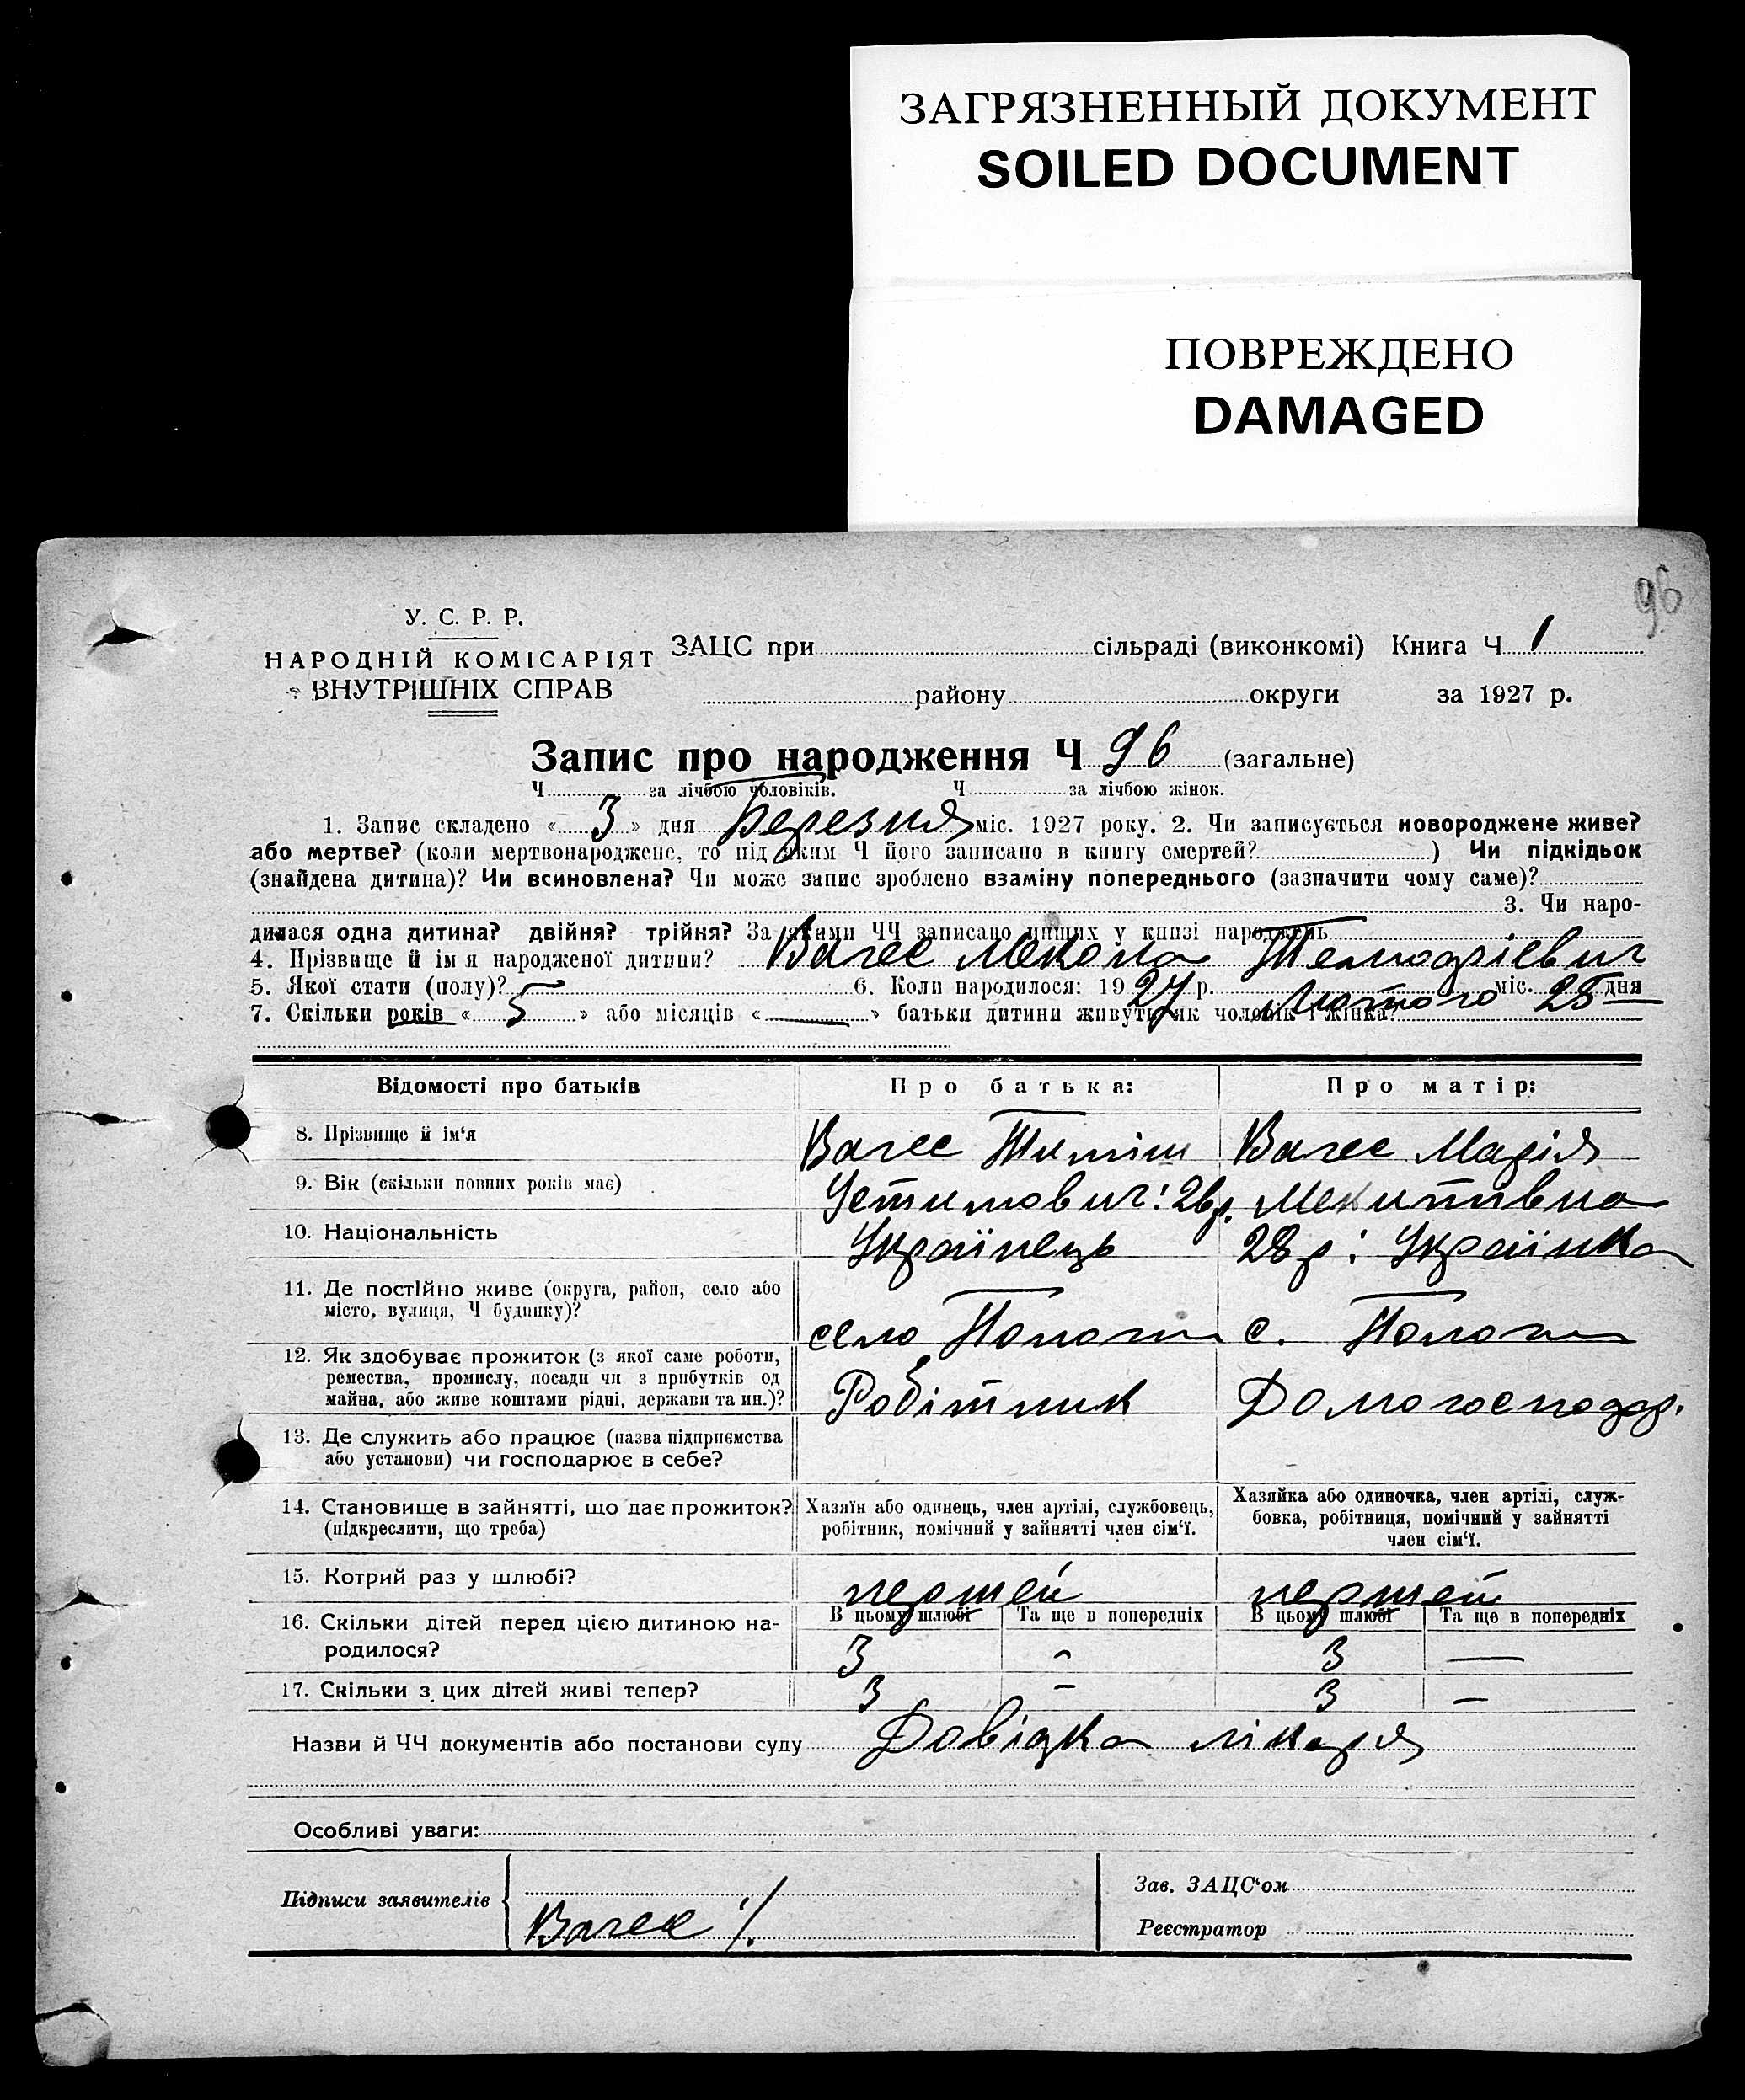 ЗАГРЯЗНЕННЫЙ ДОКУМЕНТ
SOILED DOCUMENT
ПОВРЕЖДЕНО
DAMAGED
96
У. С. Р. Р.
НАРОДНІЙ КОМІСАРІЯТ
ВНУТРІШНІХ СПРАВ
ЗАЦС при сільраді (виконкомі) Книга Ч 1
району округи за 1927 р.
Запис про народження Ч 96 (загальне)
Ч за лічбою чоловіків. Ч за лічбою жінок.
1. Запис складено « 3 » дня Березня міс. 1927 року. 2. Чи записується новороджене живе?
або мертве? (коли мертвонароджене, то під яким Ч його записано в книгу смертей? ) Чи підкідьок
(знайдена дитина)? Чи всиновлена? Чи може запис зроблено взаміну попереднього (зазначити чому саме)?
3. Чи наро-
дилася одна дитина? двійня? трійня? За якими ЧЧ записано инших у книзі народжень
4. Прізвище й ім'я народженої дитини? Микола
5. Якої стати (полу)? 6. Коли народилося: 1927 р. Лютого міс. 25 дня
7. Скільки років « 5 » або місяців « — » батьки дитини живуть як чоловік і жінка?
Відомості про батьків
Про батька:
Про матір:
8. Прізвище й ім'я
Тиміш
Марія
9. Вік (скільки повних років має)
Устимович: 26 р.
Микитівна
10. Національність
Українець
28 р: Українка
11. Де постійно живе (округа, район, село або
місто, вулиця, Ч будинку)?
село Пологи
с. Пологи
12. Як здобуває прожиток (з якої саме роботи,
ремества, промислу, посади чи з прибутків од
майна, або живе коштами рідні, держави та ин.)?
Робітник
Домогосподар.
13. Де служить або працює (назва підприємства
або установи) чи господарює в себе?
14. Становище в зайнятті, що дає прожиток?
(підкреслити, що треба)
Хазяїн або одинець, член артілі, службовець,
робітник, помічний у зайнятті член сім'ї.
Хазяйка або одиночка, член артілі, служ-
бовка, робітниця, помічний у зайнятті
член сім'ї.
15. Котрий раз у шлюбі?
першей
першей
16. Скільки дітей перед цією дитиною на-
родилося?
В цьому шлюбі Та ще в попередніх В цьому шлюбі Та ще в попередніх
3 - 3 —
17. Скільки з цих дітей живі тепер?
3 - 3 —
Назви й ЧЧ документів або постанови суду Довідка лікаря
Особливі уваги:
Підписи заявителів
Зав. ЗАЦС'ом
Реєстратор